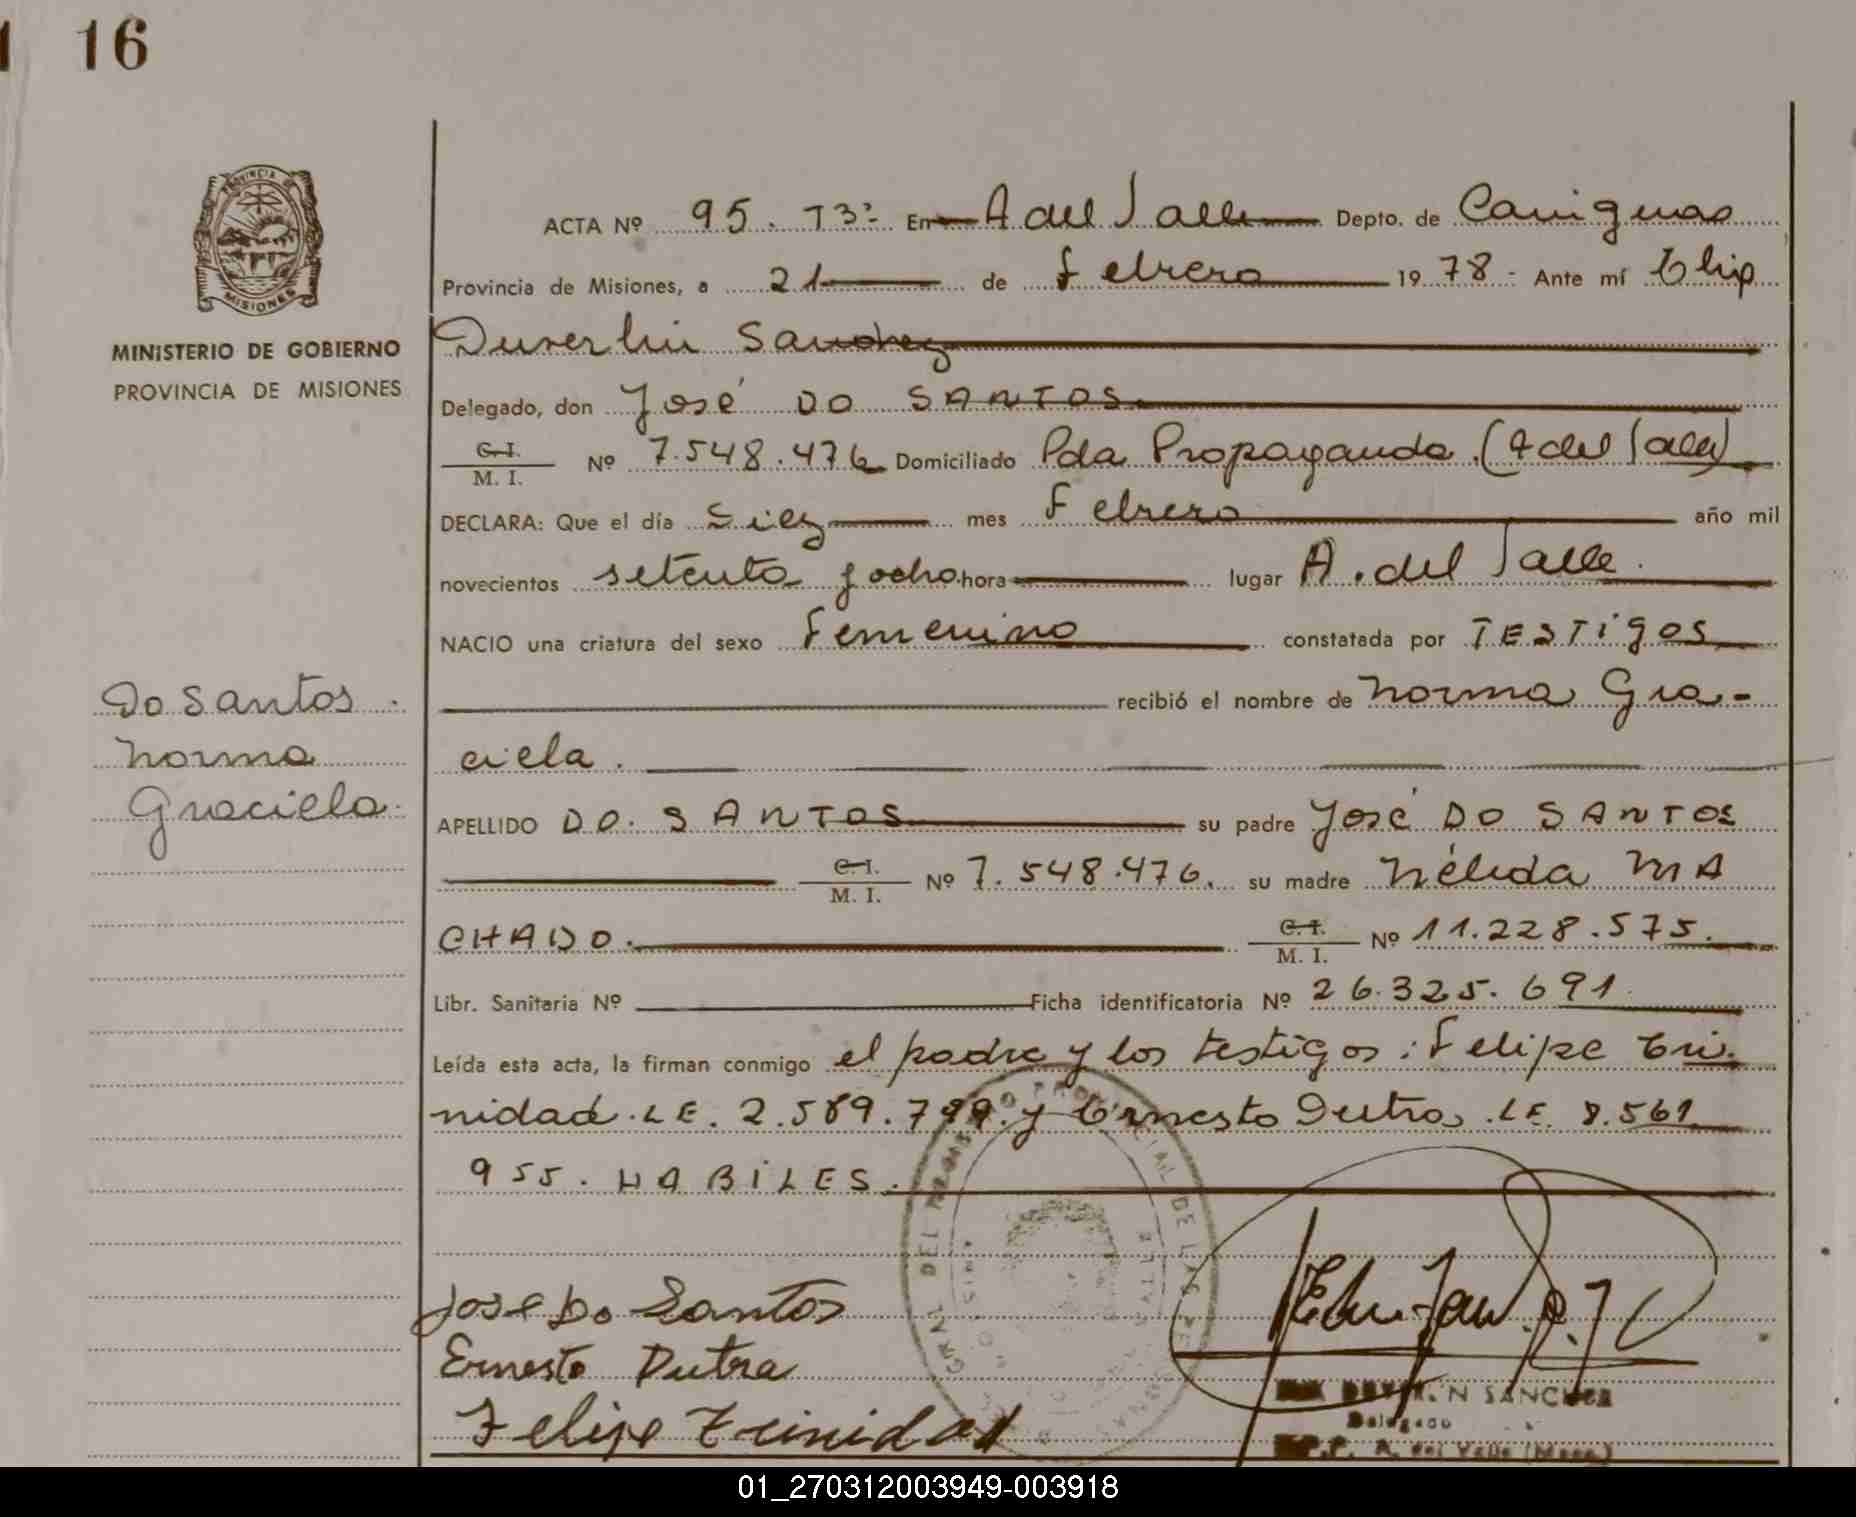 16
PROVINCIA DE
MISIONES
MINISTERIO DE GOBIERNO
PROVINCIA DE MISIONES
ACTA Nº 95. T3º En A del Valle Depto. de Cainguas
Provincia de Misiones, a 21 de Febrero 1978 - Ante mí
Duverlin Sanchez
Delegado, don José DO SANTOS
C.I. / M. I. Nº 7.548.476 Domiciliado Pda Propaganda. (A del Valle)
DECLARA: Que el día Diez mes Febrero año mil
novecientos setenta y ocho hora lugar A. del Valle.
NACIO una criatura del sexo Femenino constatada por TESTigos
recibió el nombre de Norma Gra-
ciela.
Do Santos.
Norma
Graciela.
APELLIDO DO. SANTOS su padre José DO SANTOS
C.I. / M. I. Nº 7.548.476. su madre Nélida MA
CHADO. C.I. / M. I. Nº 11.228.575.
Libr. Sanitaria Nº Ficha identificatoria Nº 26.325.691.
Leída esta acta, la firman conmigo el padre y los testigos: Felipe Tri.
nidad. LE. 2.589.799. y Ernesto Dutra. LE 8.561
955. HABILES.
Jose Do Santos
Ernesto Dutra
Felipe Trinidad
SANCHEZ
Delegado
A. del Valle (Mnes.)
01_270312003949-003918